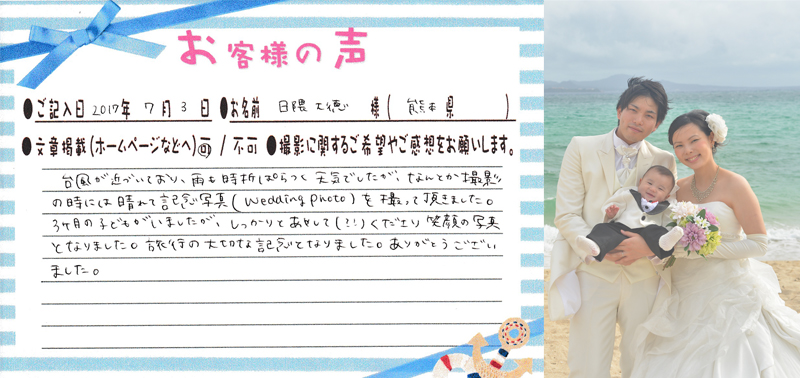 お客様の声
●ご記入日 2017年 7月 3日 ●お名前 日隈 大徳 様 ( 熊本 県 )
●文章掲載(ホームページなどへ) 可 / 不可 ●撮影に関するご希望やご感想をお願いします。
台風が近づいており、雨も時折ぱらつく天気でしたが、なんとか撮影
の時には晴れて記念写真(Wedding Photo)を撮って頂きました。
3ヶ月の子どもがいましたが、しっかりとあやして(?!)くださり笑顔の写真
となりました。旅行の大切な記念となりました。ありがとうござい
ました。